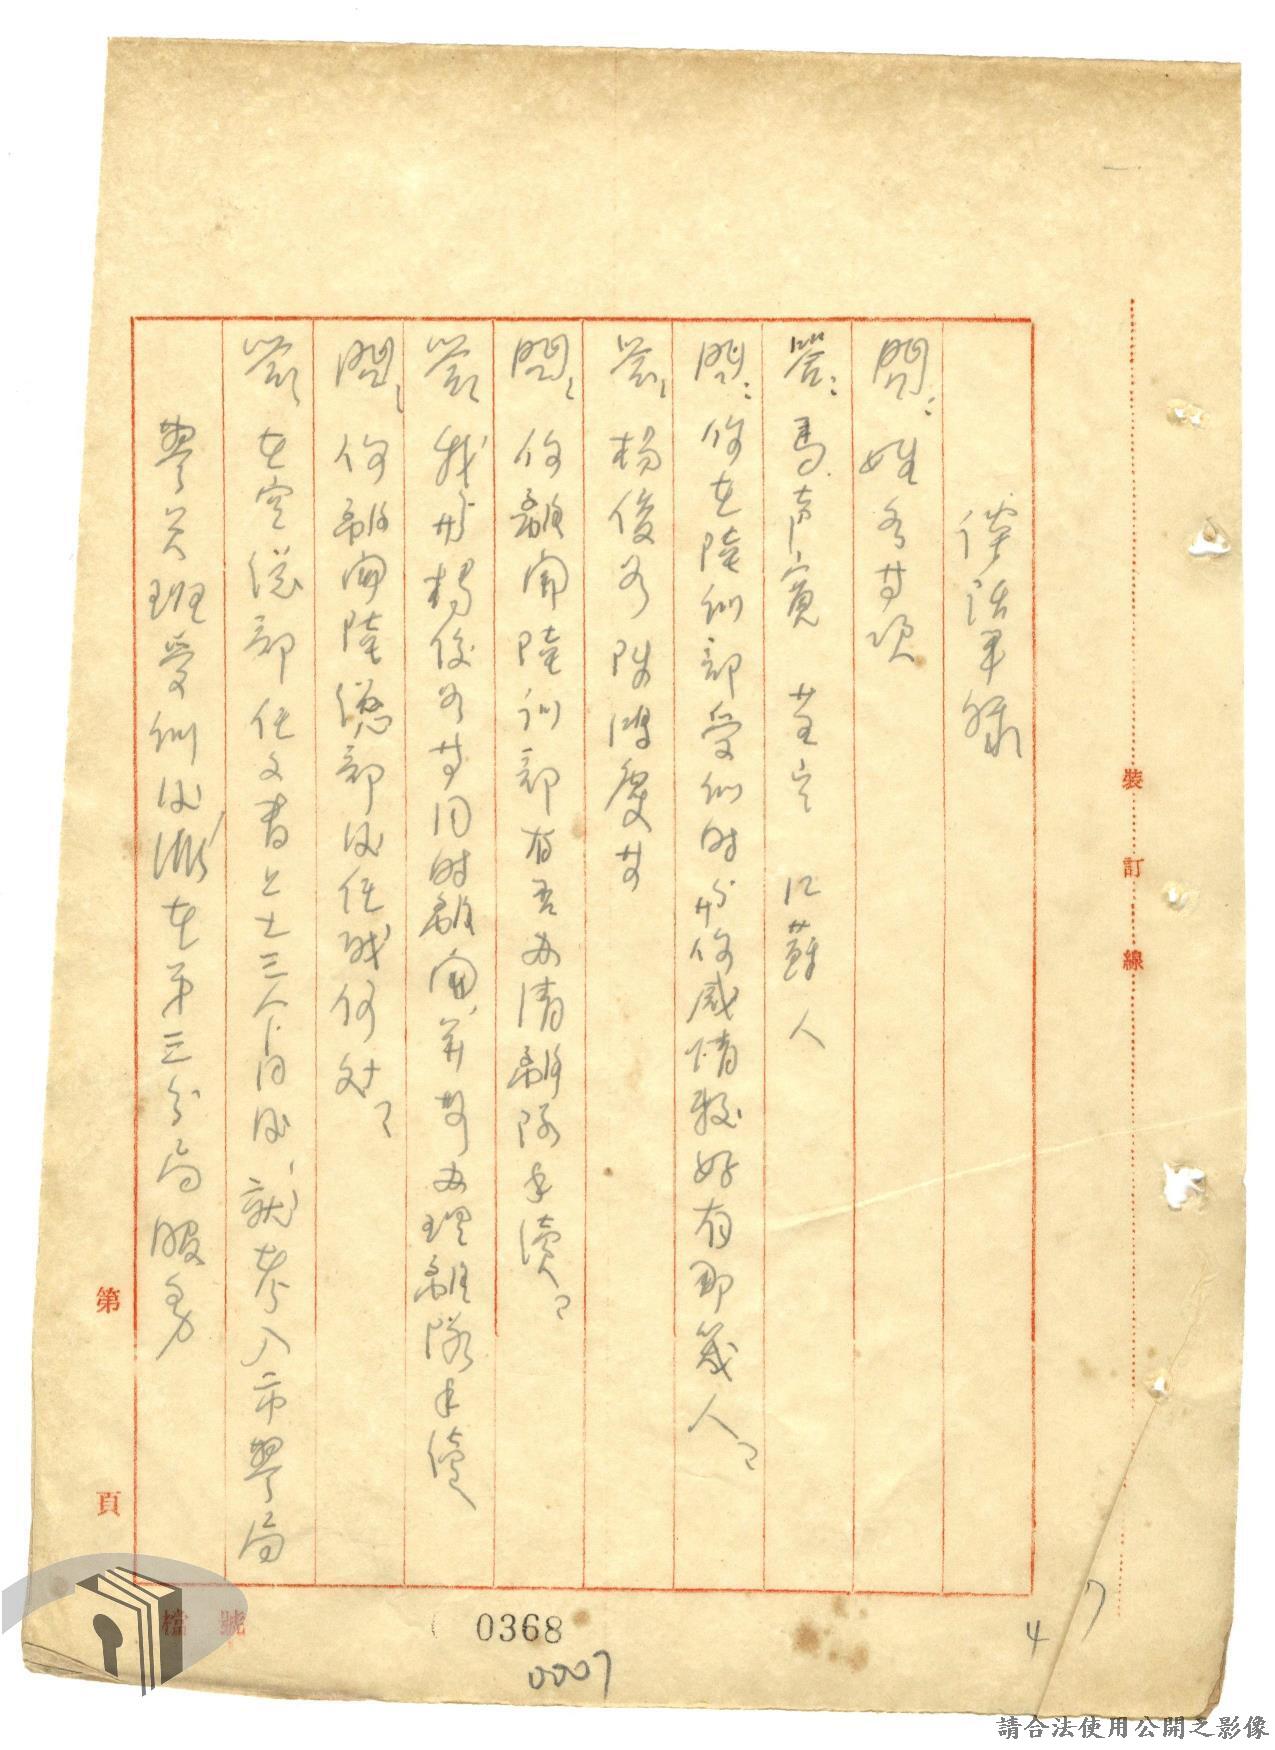 談話筆錄
問：姓名等項
答：馬聲寅 廿 江蘇人
問：你在陸訓部受訓时與你感情較好有那幾人？
答：楊俊 陳鴻慶等
問：你離開陸訓部有否办清離隊手續？
答：我與楊俊 等同时離開，并無办理離隊手續
問：你離開陸總部後任職何处？
答：在空總部任文書上士三个月後，就考入市警局
警員班受訓後派在第三分局服務
裝訂線
第 頁
檔 號
0368
0007
4
7
請合法使用公開之影像